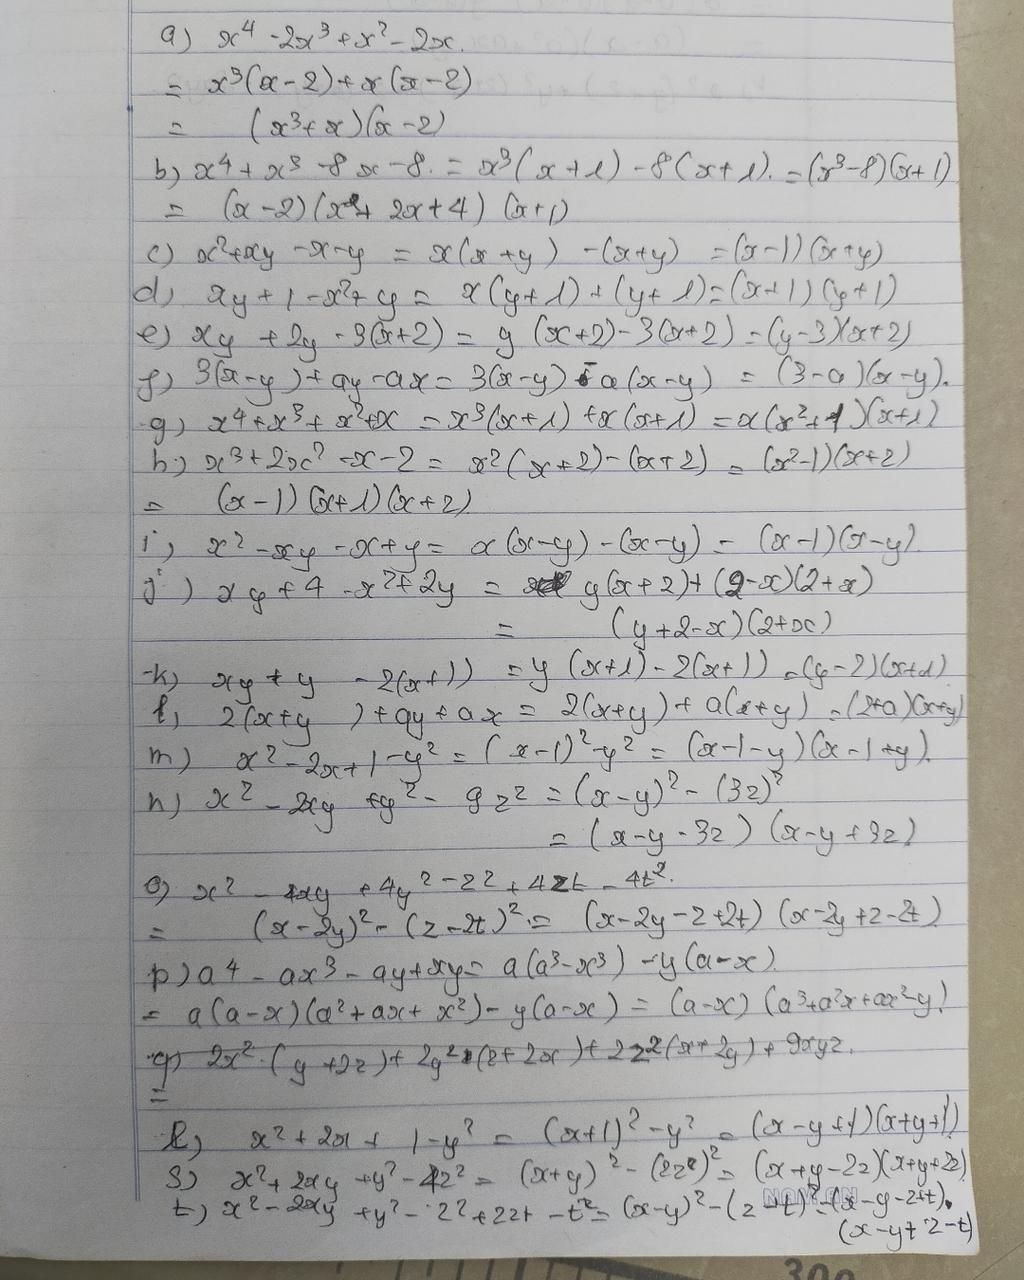 a) x⁴ - 2x³ + x² - 2x.
= x³(x - 2) + x(x - 2)
= (x³ + x)(x - 2)
b) x⁴ + x³ - 8x - 8. = x³(x + 1) - 8(x + 1). = (x³ - 8)(x + 1)
= (x - 2)(x² + 2x + 4)(x + 1)
c) x² + xy - x - y = x(x + y) - (x + y) = (x - 1)(x + y)
d) xy + 1 - x² + y = x(y + 1) + (y + 1) = (x + 1)(y + 1)
e) xy + 2y - 3(x + 2) = y(x + 2) - 3(x + 2) = (y - 3)(x + 2)
f) 3(x - y) + ay - ax = 3(x - y) - a(x - y) = (3 - a)(x - y).
g) x⁴ + x³ + x² + x = x³(x + 1) + x(x + 1) = x(x² + 1)(x + 1)
h) x³ + 2x² - x - 2 = x²(x + 2) - (x + 2) = (x² - 1)(x + 2)
= (x - 1)(x + 1)(x + 2)
i) x² - xy - x + y = x(x - y) - (x - y) = (x - 1)(x - y)
j) xy + 4 - x² + 2y = y(x + 2) + (2 - x)(2 + x)
= (y + 2 - x)(2 + x)
k) xy + y - 2(x + 1)) = y(x + 1) - 2(x + 1)) = (y - 2)(x + 1)
l) 2(x + y) + ay + ax = 2(x + y) + a(x + y) = (2 + a)(x + y)
m) x² - 2x + 1 - y² = (x - 1)² - y² = (x - 1 - y)(x - 1 + y).
n) x² - 2xy + y² - 9z² = (x - y)² - (3z)²
= (x - y - 3z)(x - y + 3z)
o) x² - 4xy + 4y² - z² + 4zt - 4t².
= (x - 2y)² - (z - 2t)² = (x - 2y - z + 2t)(x - 2y + z - 2t)
p) a⁴ - ax³ - ay + xy = a(a³ - x³) - y(a - x)
= a(a - x)(a² + ax + x²) - y(a - x) = (a - x)(a³ + a²x + ax² - y)
q) 2x²(y + 2z) + 2y²(z + 2x) + 2z²(x + 2y) + 9xyz.
=
r) x² + 2x + 1 - y² = (x + 1)² - y² = (x - y + 1)(x + y + 1)
s) x² + 2xy + y² - 4z² = (x + y)² - (2z)² = (x + y - 2z)(x + y + 2z)
t) x² - 2xy + y² - z² + 2zt - t² = (x - y)² - (z - t)² = (x - y - z + t).
(x - y + z - t)
300